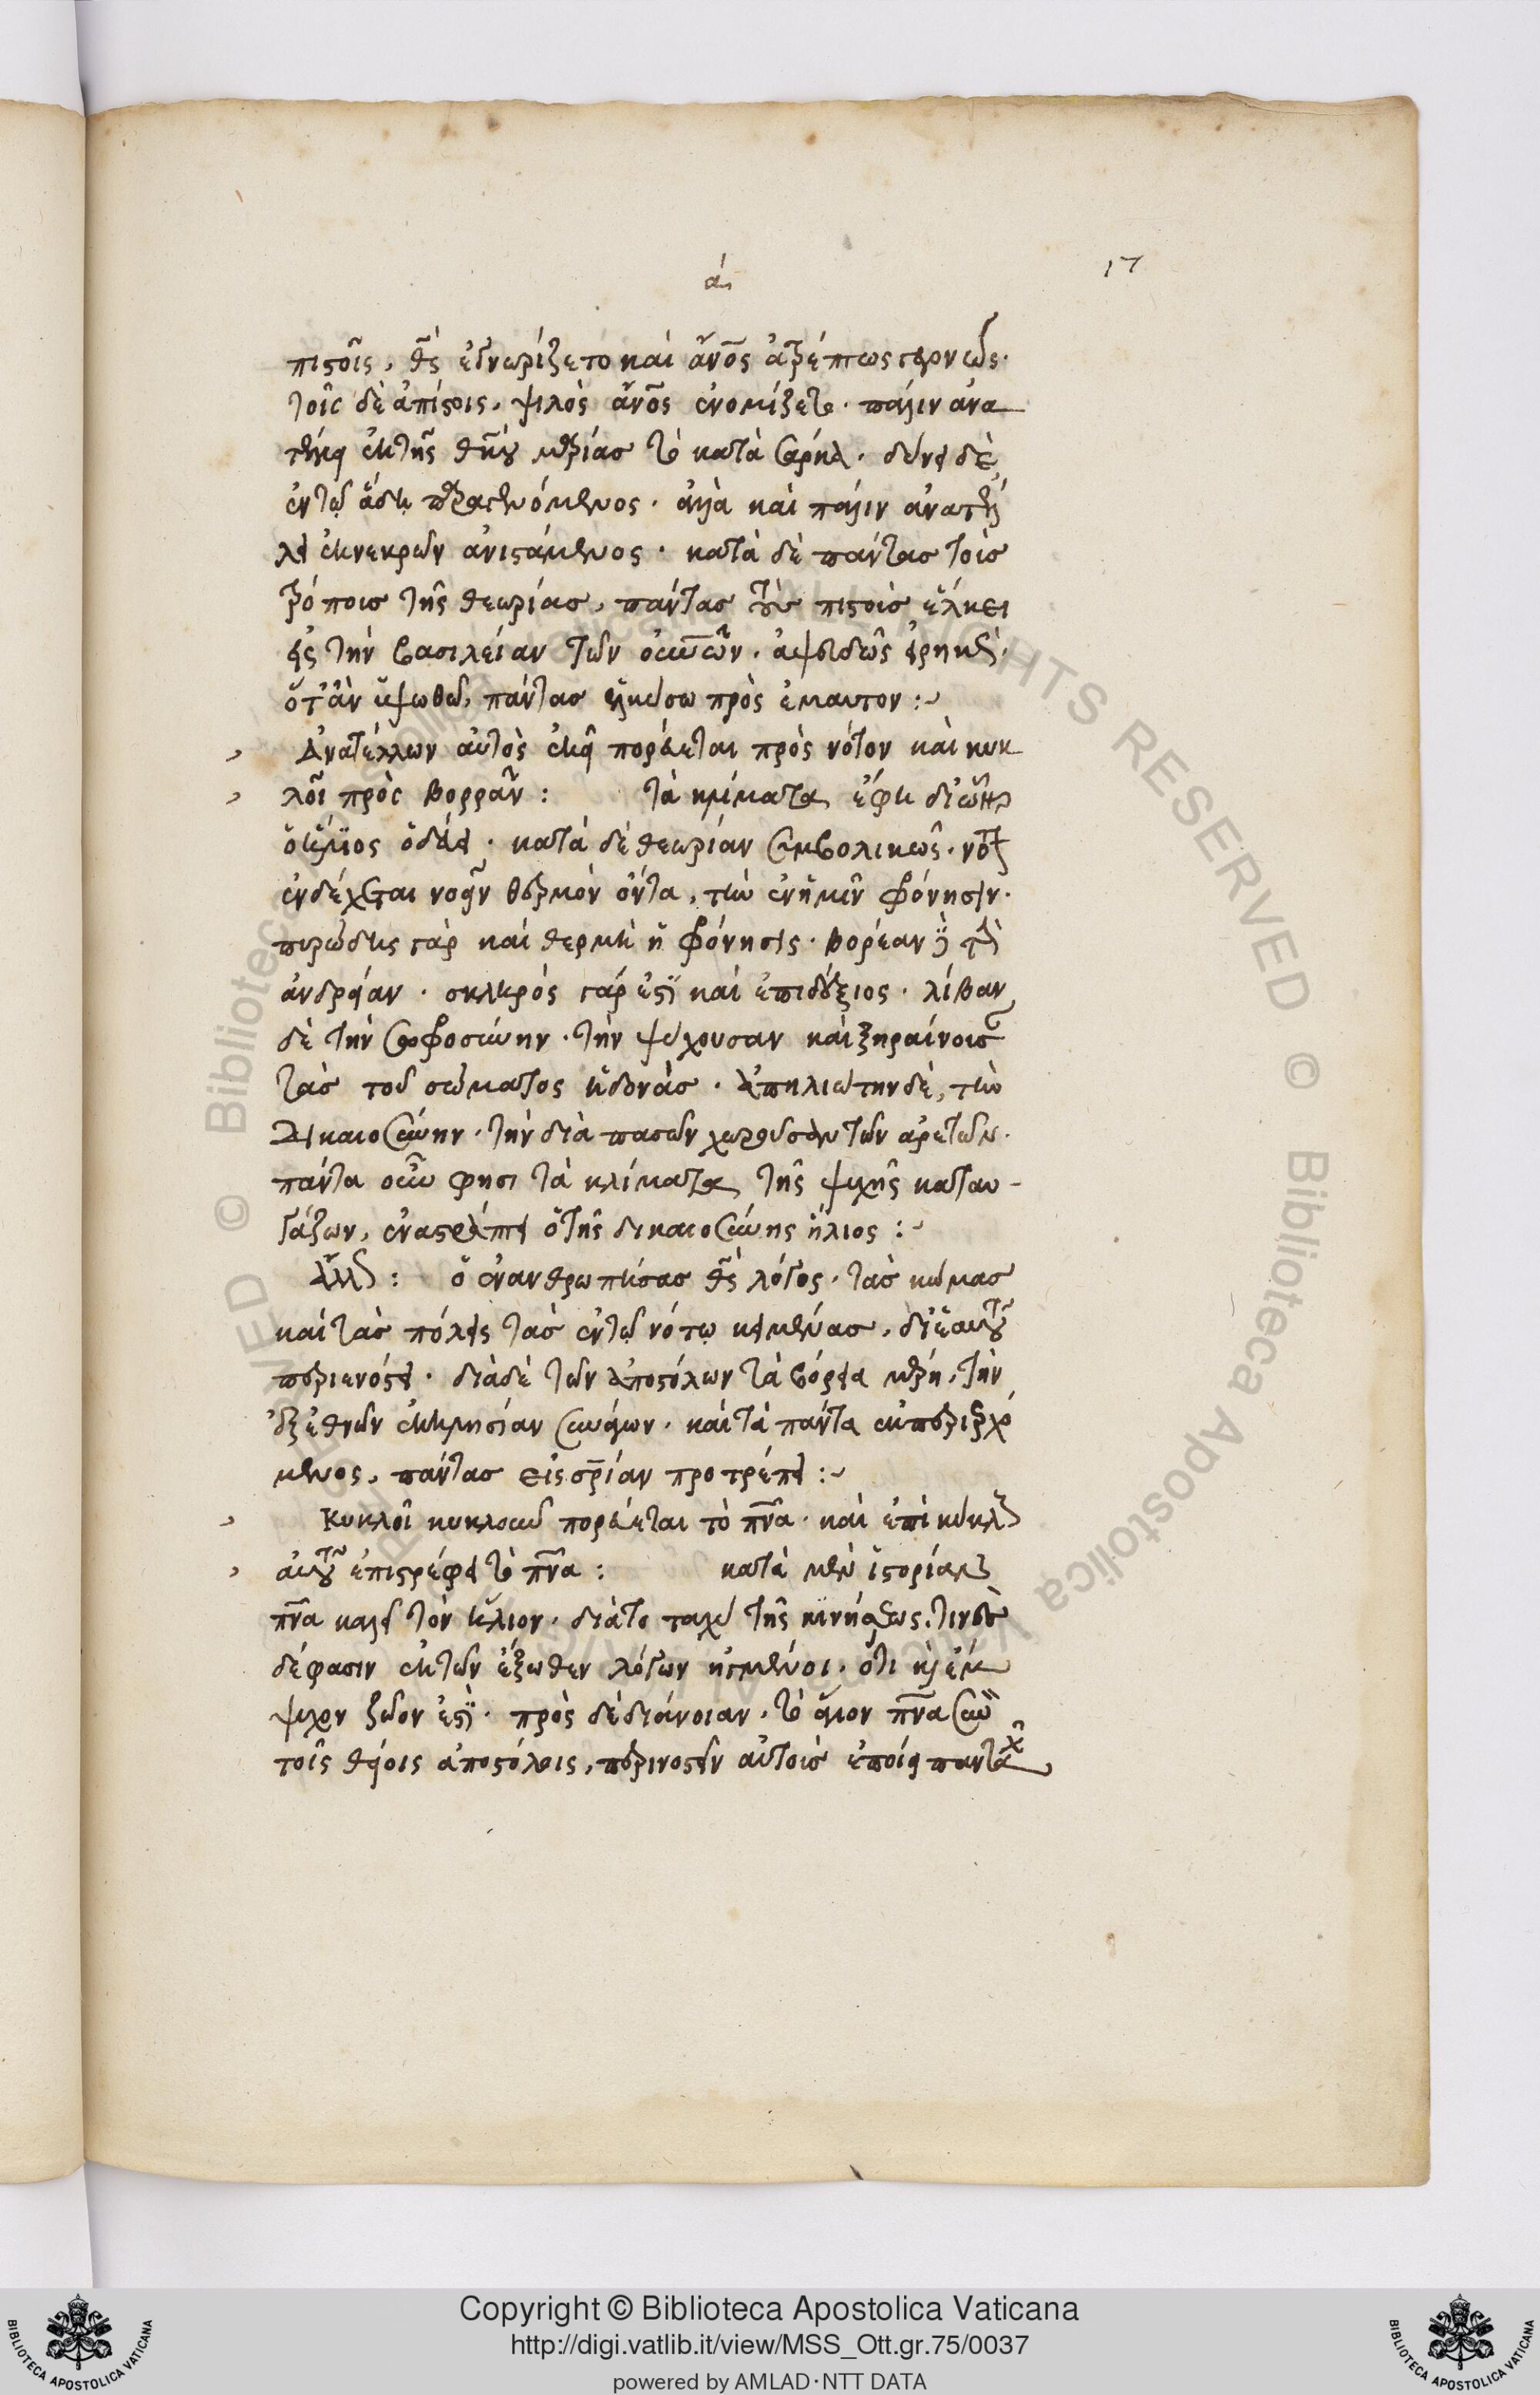 ά
17
πιστοῖς, θς ἐγνωρίζετο καὶ ἄνος ἀτρέπτως γεγονώς·
τοῖς δὲ ἀπίστοις, ψιλὸς ἄνος ἐνομίζετο· πάλιν ἀνα
τέλλει ἐκ τῆς θκου μρίας τὸ κατὰ σάρκα· δύνει δὲ
ἐν τῷ ἅδη
 ἀλλὰ καὶ πάλιν ἀνατέλ
λει ἐκ νεκρῶν ἀνιστάμενος· κατὰ δὲ πάντας τοὺς
τρόπους τῆς θεωρίας, πάντας τοὺς πιστοὺς ἕλκει
εἰς τὴν βασιλείαν τῶν οὐνῶν· ἀψευδῶς εἰρηκώς·
ὅτ' ἂν ὑψωθῶ, πάντας ἑλκύσω πρὸς ἐμαυτον:
Ἀνατέλλων αὐτὸς ἐκεῖ πορεύεται πρὸς νότον καὶ κυκ
λοῖ πρὸς βορρᾶν: τὰ κλίματα ἔφη δι' ὧν
ὁ ἥλιος ὁδεύει· κατὰ δὲ θεωρίαν συμβολικῶς· νότον
ἐνδέχεται νοεῖν θερμὸν ὄντα, τὴν ἐν ἡμῖν φρόνησιν·
πυρώδης γὰρ καὶ θερμὴ ἡ φρόνησις· βορέαν δὲ τὴν
ἀνδρείαν· σκληρὸς γάρ ἐστι καὶ ἐπιδέξιος· λίβαν
δὲ τὴν σωφροσύνην· τὴν ψύχουσαν καὶ ξηραίνουσαν
τὰς τοῦ σώματος ἡδονάς· ἀπηλιώτην δὲ, τὴν
δικαιοσύνην· τὴν διὰ πασῶν χωροῦσαν τῶν ἀρετῶν·
πάντα οὖν φησι τὰ κλίματα τῆς ψυχῆς καταυ-
γάζων, ἐναστράπτει ὁ τῆς δικαιοσύνης ἥλιος:
ἄλλως: ὁ ἐνανθρωπήσας θς λόγος· τὰς κώμας
καὶ τὰς πόλεις τὰς ἐν τῷ νότῳ κειμένας, δι' ἑαυτοῦ
περιενόστει· διὰ δὲ τῶν ἀποστόλων τὰ βόρεια μέρη, τὴν
ἐξ ἐθνῶν ἐκκλησίαν συνάγων· καὶ τὰ πάντα ἐκπεριερχό
μενος, πάντας εἰς σρίαν προτρέπει:
Κυκλοῖ κυκλοῦν πορεύεται τὸ πνα· καὶ ἐπὶ κύκλους
αὐτοῦ ἐπιστρέφει τὸ πνα: κατὰ μὲν ἱστορίαν
πνα καλεῖ τὸν ἥλιον· διὰ τὸ ταχὺ τῆς κινήσεως, τινὲς
δέ φασιν ἐκ τῶν ἔξωθεν λόγων ἠγμένοι· ὅτι καὶ ἔμ
ψυχον ζῶον ἐστί· πρὸς δὲ διάνοιαν, τὸ ἅγιον πνα συνὸν
τοῖς θείοις ἀποστόλοις, περινοστεῖν αὐτοὺς ἐποίει πανταχοῦ
Copyright © Biblioteca Apostolica Vaticana
http://digi.vatlib.it/view/MSS_Ott.gr.75/0037
powered by AMLAD·NTT DATA